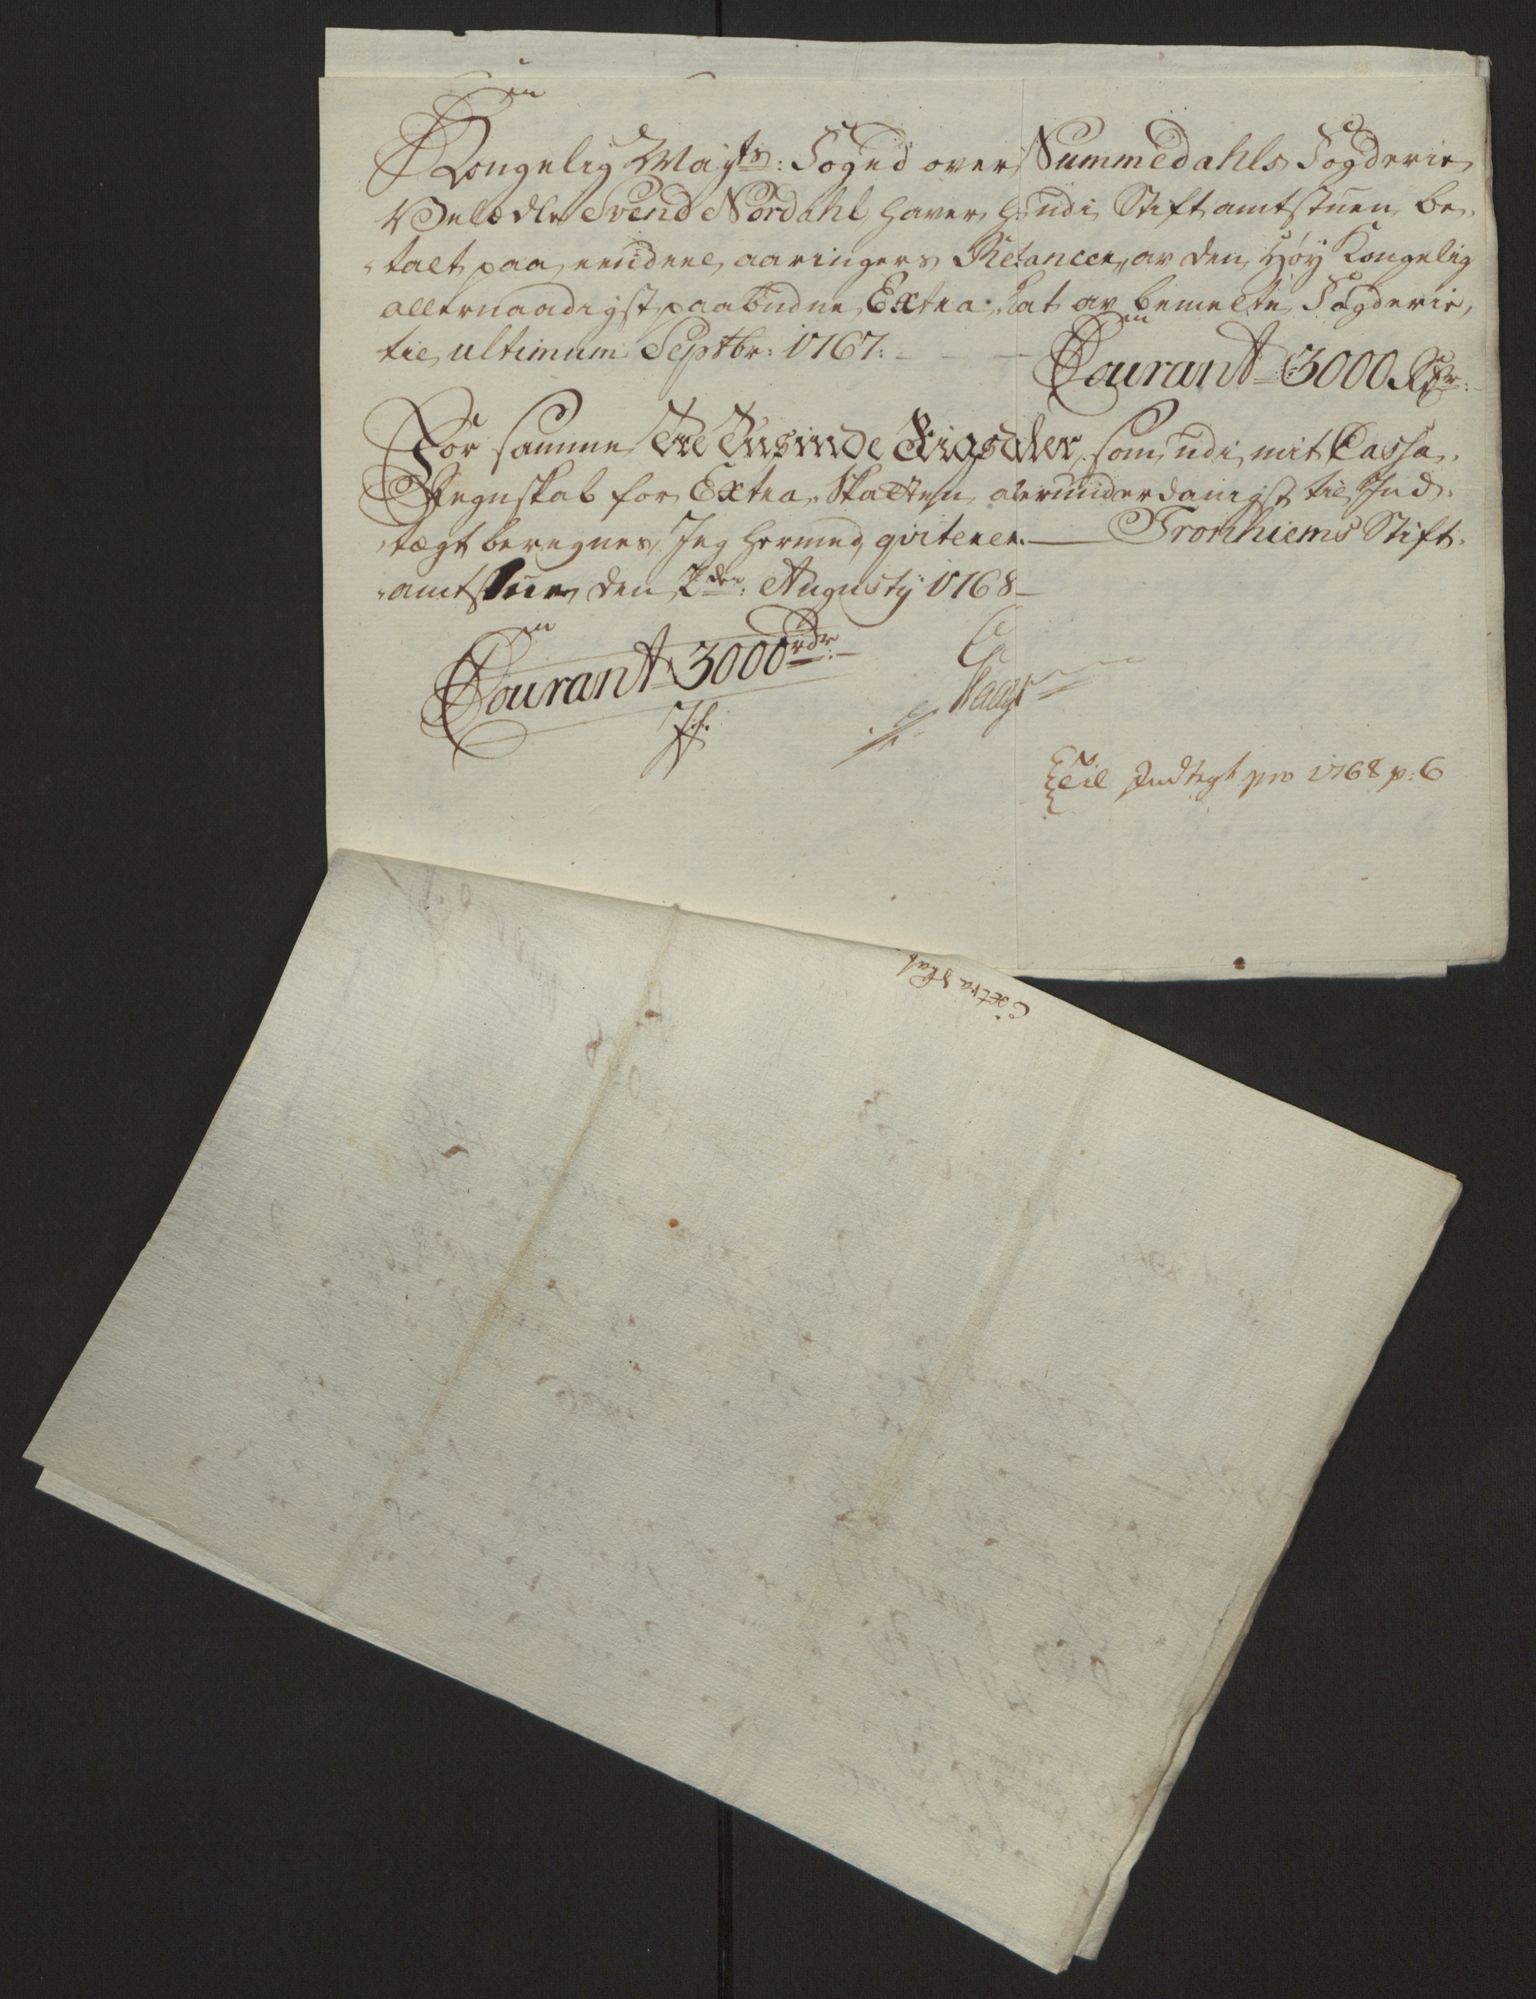 Kongelig Mayts: Foged over Nummedahls Fogderie
Velædle Svend Nordahl haver hændi Stiftamtstuen be-
talt paa eendeel aaringers Restancer, av den Høy Kongelig
allernaadigst paabudne Extra Skat av bemelte Fogderie,
til ultimum Septbr: 1767:
Courant 3000 Rdr:
For samme Tre Tusinde Rigsdler, som udi mit Cassa
Regnskab for Extra Skatten allerunderdanigst til Ind-
tægt beregnes, Jeg hermed qviterer. Tronhiems Stift-
amtstue den 2den: Augusty 1768
Courant 3000 rdr:
Til Indtegt pro 1768 p: 6
Extra skat